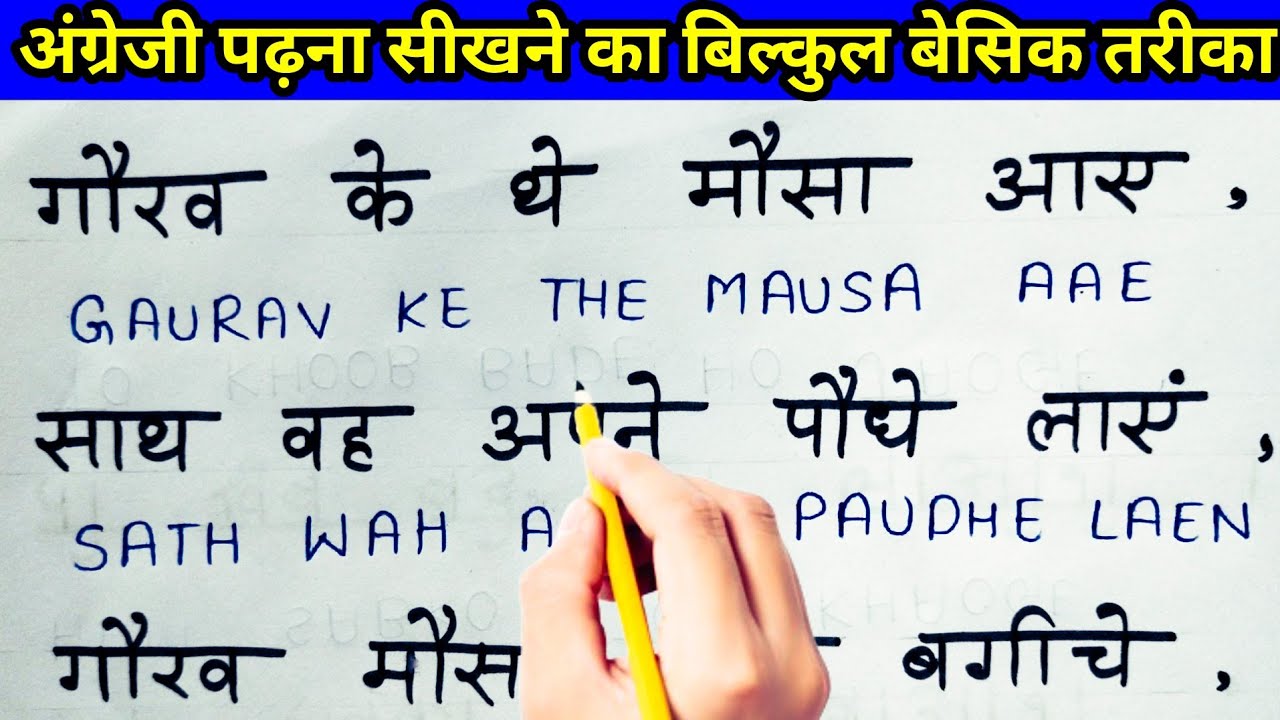 अंग्रेजी पढ़ना सीखने का बिल्कुल बेसिक तरीका
गौरव के थे मौसा आए ,
GAURAV KE THE MAUSA AAE
साथ वह अपने पौधे लाएं ,
SATH WAH PAUDHE LAEN
गौरव बगीचे ,